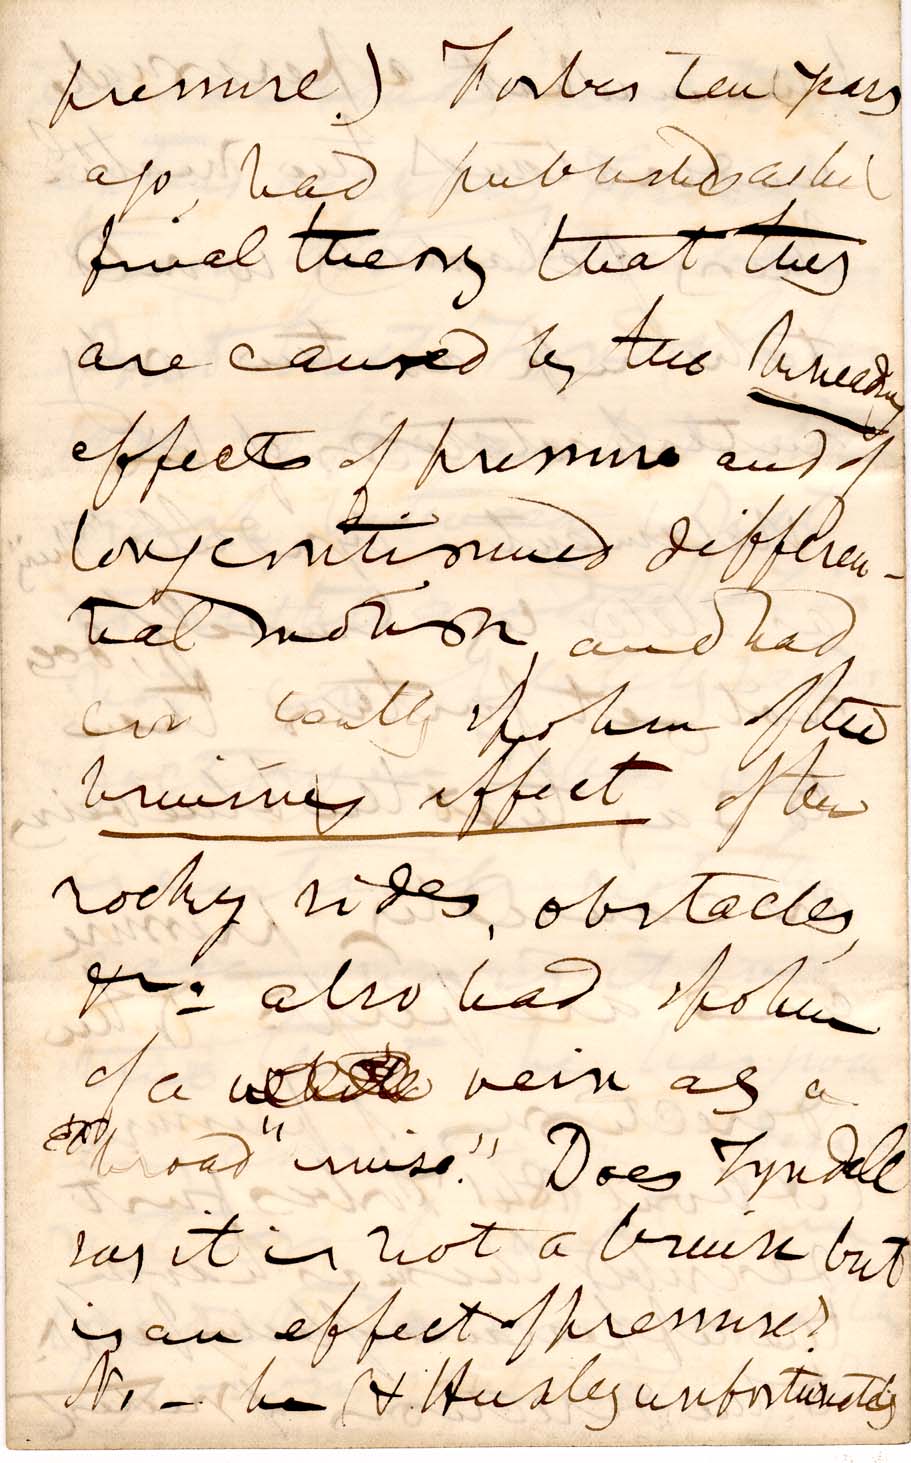 pressure.) Forbes ten years
ago, had published as his
final theory that they
are caused by the kneading
effects of pressure and of
long continued differen-
tial motion, and had
constantly spoken of the
bruising effect of the
rocky sides, obstacles,
&c. also had spoken
of a vein as a
broad "bruise." Does Tyndall
say it is not a bruise but
is an effect of pressure?
No – he & Huxley unfortunately